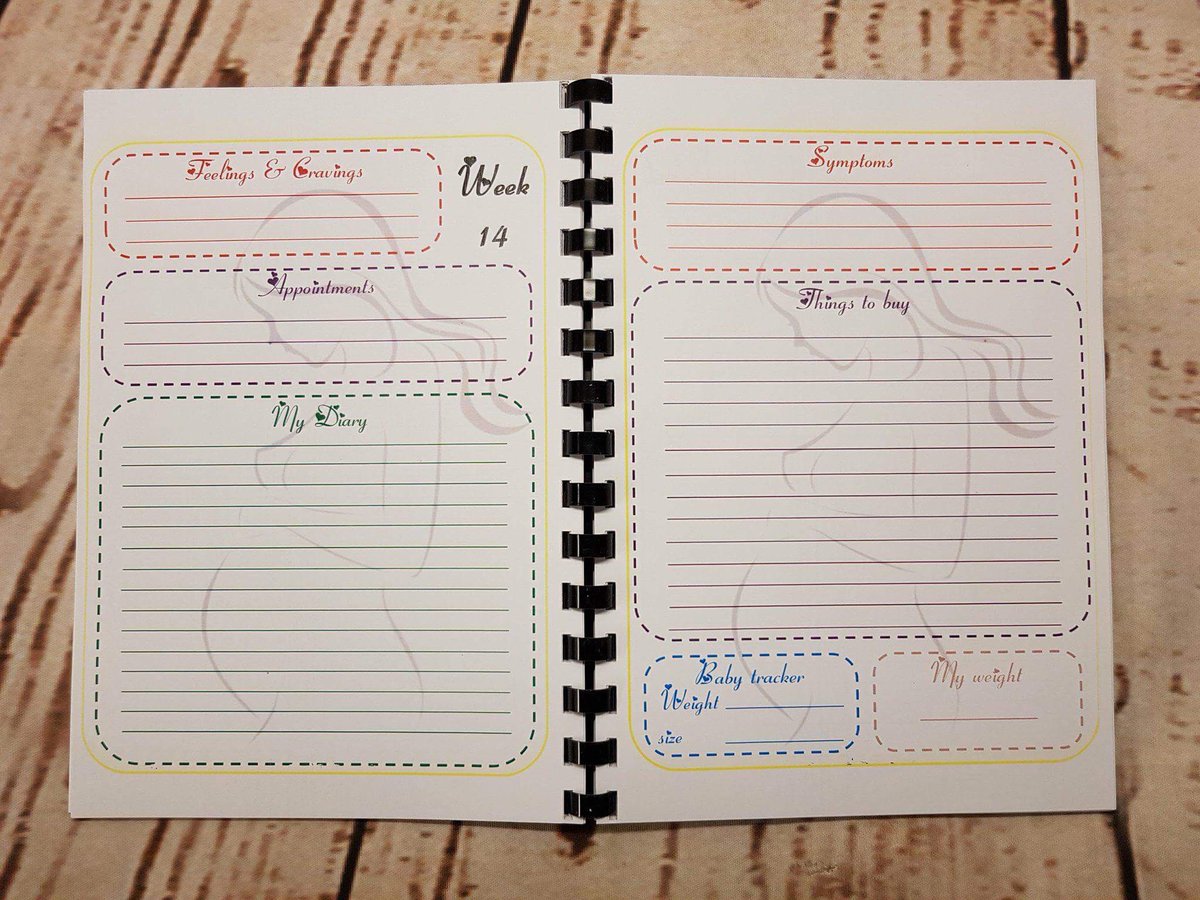 Feelings & Cravings
Week
14
Appointments
My Diary
Symptoms
Things to buy
Baby tracker
Weight
size
My weight